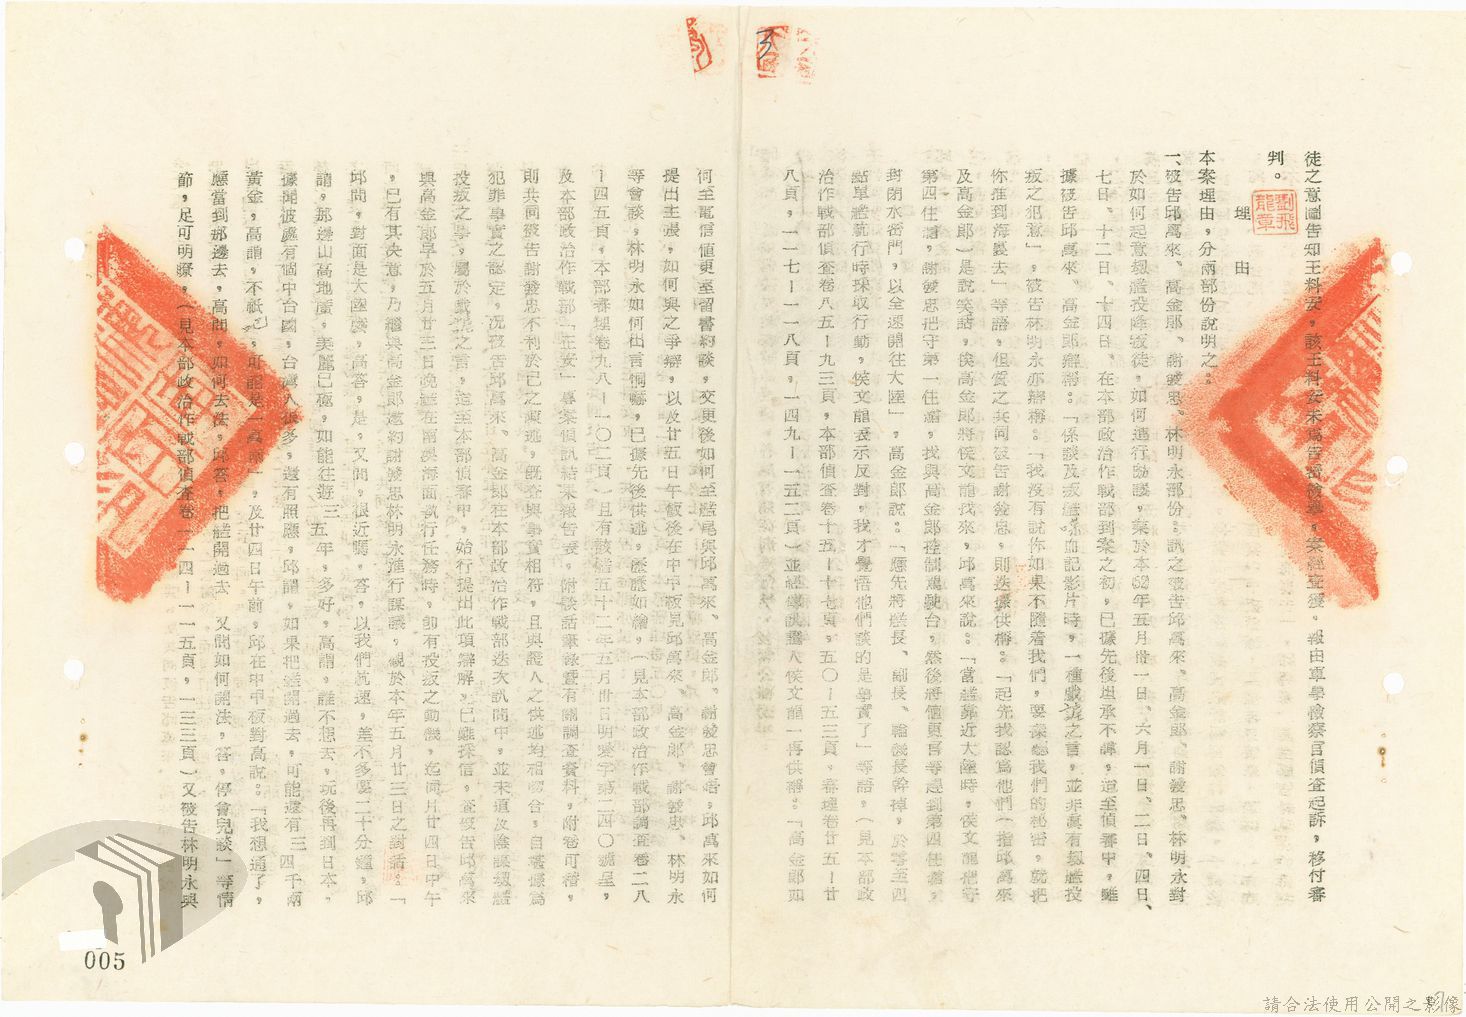 徒之意圖告知王料安，該王料安未爲告密檢舉，案經查獲，報由軍事檢察官偵查起訴，移付審
判。
劉飛龍章
理　由
本案理由，分兩部份說明之：
一、被告邱萬來、高金郎、謝發忠、林明永部份：訊之被告邱萬來、高金郎、謝發忠、林明永對
於如何起意刼艦投降叛徒，如何進行勘議，業於本62年五月卅一日、六月一日、二日、四日、
七日、十二日、十四日、在本部政治作戰部到案之初，已據先後坦承不諱，迨至偵審中，雖
據被告邱萬來、高金郎辯稱：「係談及叛艦喋血記影片時，一種戲謔之言，並非眞有刼艦投
叛之犯意」，被告林明永亦辯稱：「我沒有說你如果不隨着我們，要洩我們的秘密，就把
你推到海裏去」等語，但質之共同被告謝發忠，則迭據供稱：「起先我認爲他們（指邱萬來
及高金郎）是說笑話，俟高金郎將侯文龍找來，邱萬來說：「當艦靠近大陸時，侯文龍把守
第四住艙，謝發忠把守第一住艙，我與高金郎控制駕駛台，然後將値更官等趕到第四住艙，
封閉水密門，以全速開往大陸」，高金郎說：「應先將艦長、副長、輪機長幹掉，於零至四
點單艦航行時採取行動，侯文龍表示反對，我才覺悟他們談的是事實了」等語（見本部政
治作戰部偵查卷八五－九三頁，本部偵查卷十五－十七頁，五〇－五三頁，審理卷廿五－廿
八頁，一一七－一一八頁，一四九－一五二頁）並經傳訊證人侯文龍一再供稱：「高金郎如
何至電信値更室留書約談，交更後如何至艦尾與邱萬來、高金郎、謝發忠會晤，邱萬來如何
提出主張，如何與之爭辯，以及廿五日午飯後在中甲板見邱萬來、高金郎、謝發忠、林明永
等會談，林明永如何出言恫嚇，已據先後供述，歷歷如繪，（見本部政治作戰部調查卷二八
－四五頁，本部審理卷九八－一〇二頁）且有該艦五十二年五月卅日明愛字第二四〇號呈，
及本部政治作戰部「在安」專案偵訊結果報告表，附談話筆錄暨有關調查資料，附卷可稽，
則共同被告謝發忠不利於己之陳述，旣查與事實相符，且與證人之供述均相吻合，自堪據爲
犯罪事實之認定，況被告邱萬來、高金郎在本部政治作戰部迭次訊問中，並未道及陰謀刼艦
投叛之事，屬於戲謔之言，迨至本部偵審中，始行提出此項辯解，已難採信，查被告邱萬來
與高金郎早於五月廿三日晚艦在南與海面執行任務時，卽有投叛之動機，迄同月廿四日中午
，已有其決意，乃繼與高金郎邀約謝發忠林明永進行謀議，觀於本年五月廿三日之對話：「
邱問，對面是大陸麼，高答，是，又問，很近嗎，答，以我們航速，差不多要二十分鐘，邱
謂，那邊山高地廣，美麗已極，如能往遊三五年，多好，高謂，誰不想去，玩後再到日本，
據聞彼處有個中台國，台灣人很多，還有照應，邱謂，如果把艦開過去，可能還有三四千兩
黃金，高謂，不祇，可能是一萬兩」，及廿四日午前，邱在中甲板對高說：「我想通了，
應當到那邊去，高問，如何去法，邱答，把艦開過去，又問如何開法，答，停會兒談」等情
節，足可明瞭，（見本部政治作戰部偵查卷一一四－一一五頁，一三三頁）又被告林明永與
005
請合法使用公開之影像